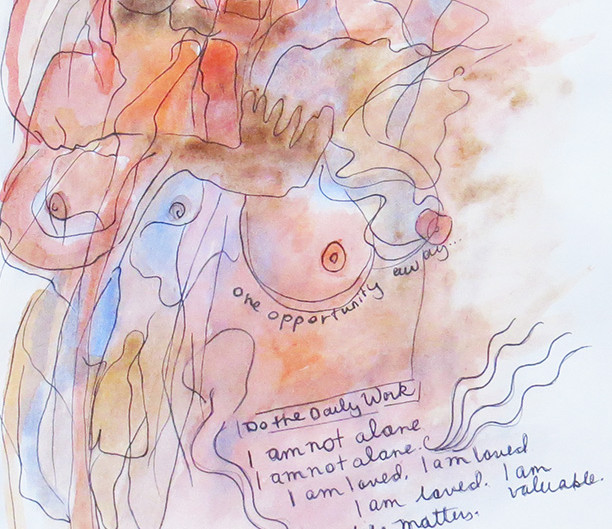 one opportunity away...
Do the Daily Work
I am not alone
I am not alone.
I am loved. I am loved
I am loved. I am
valuable.
matters.